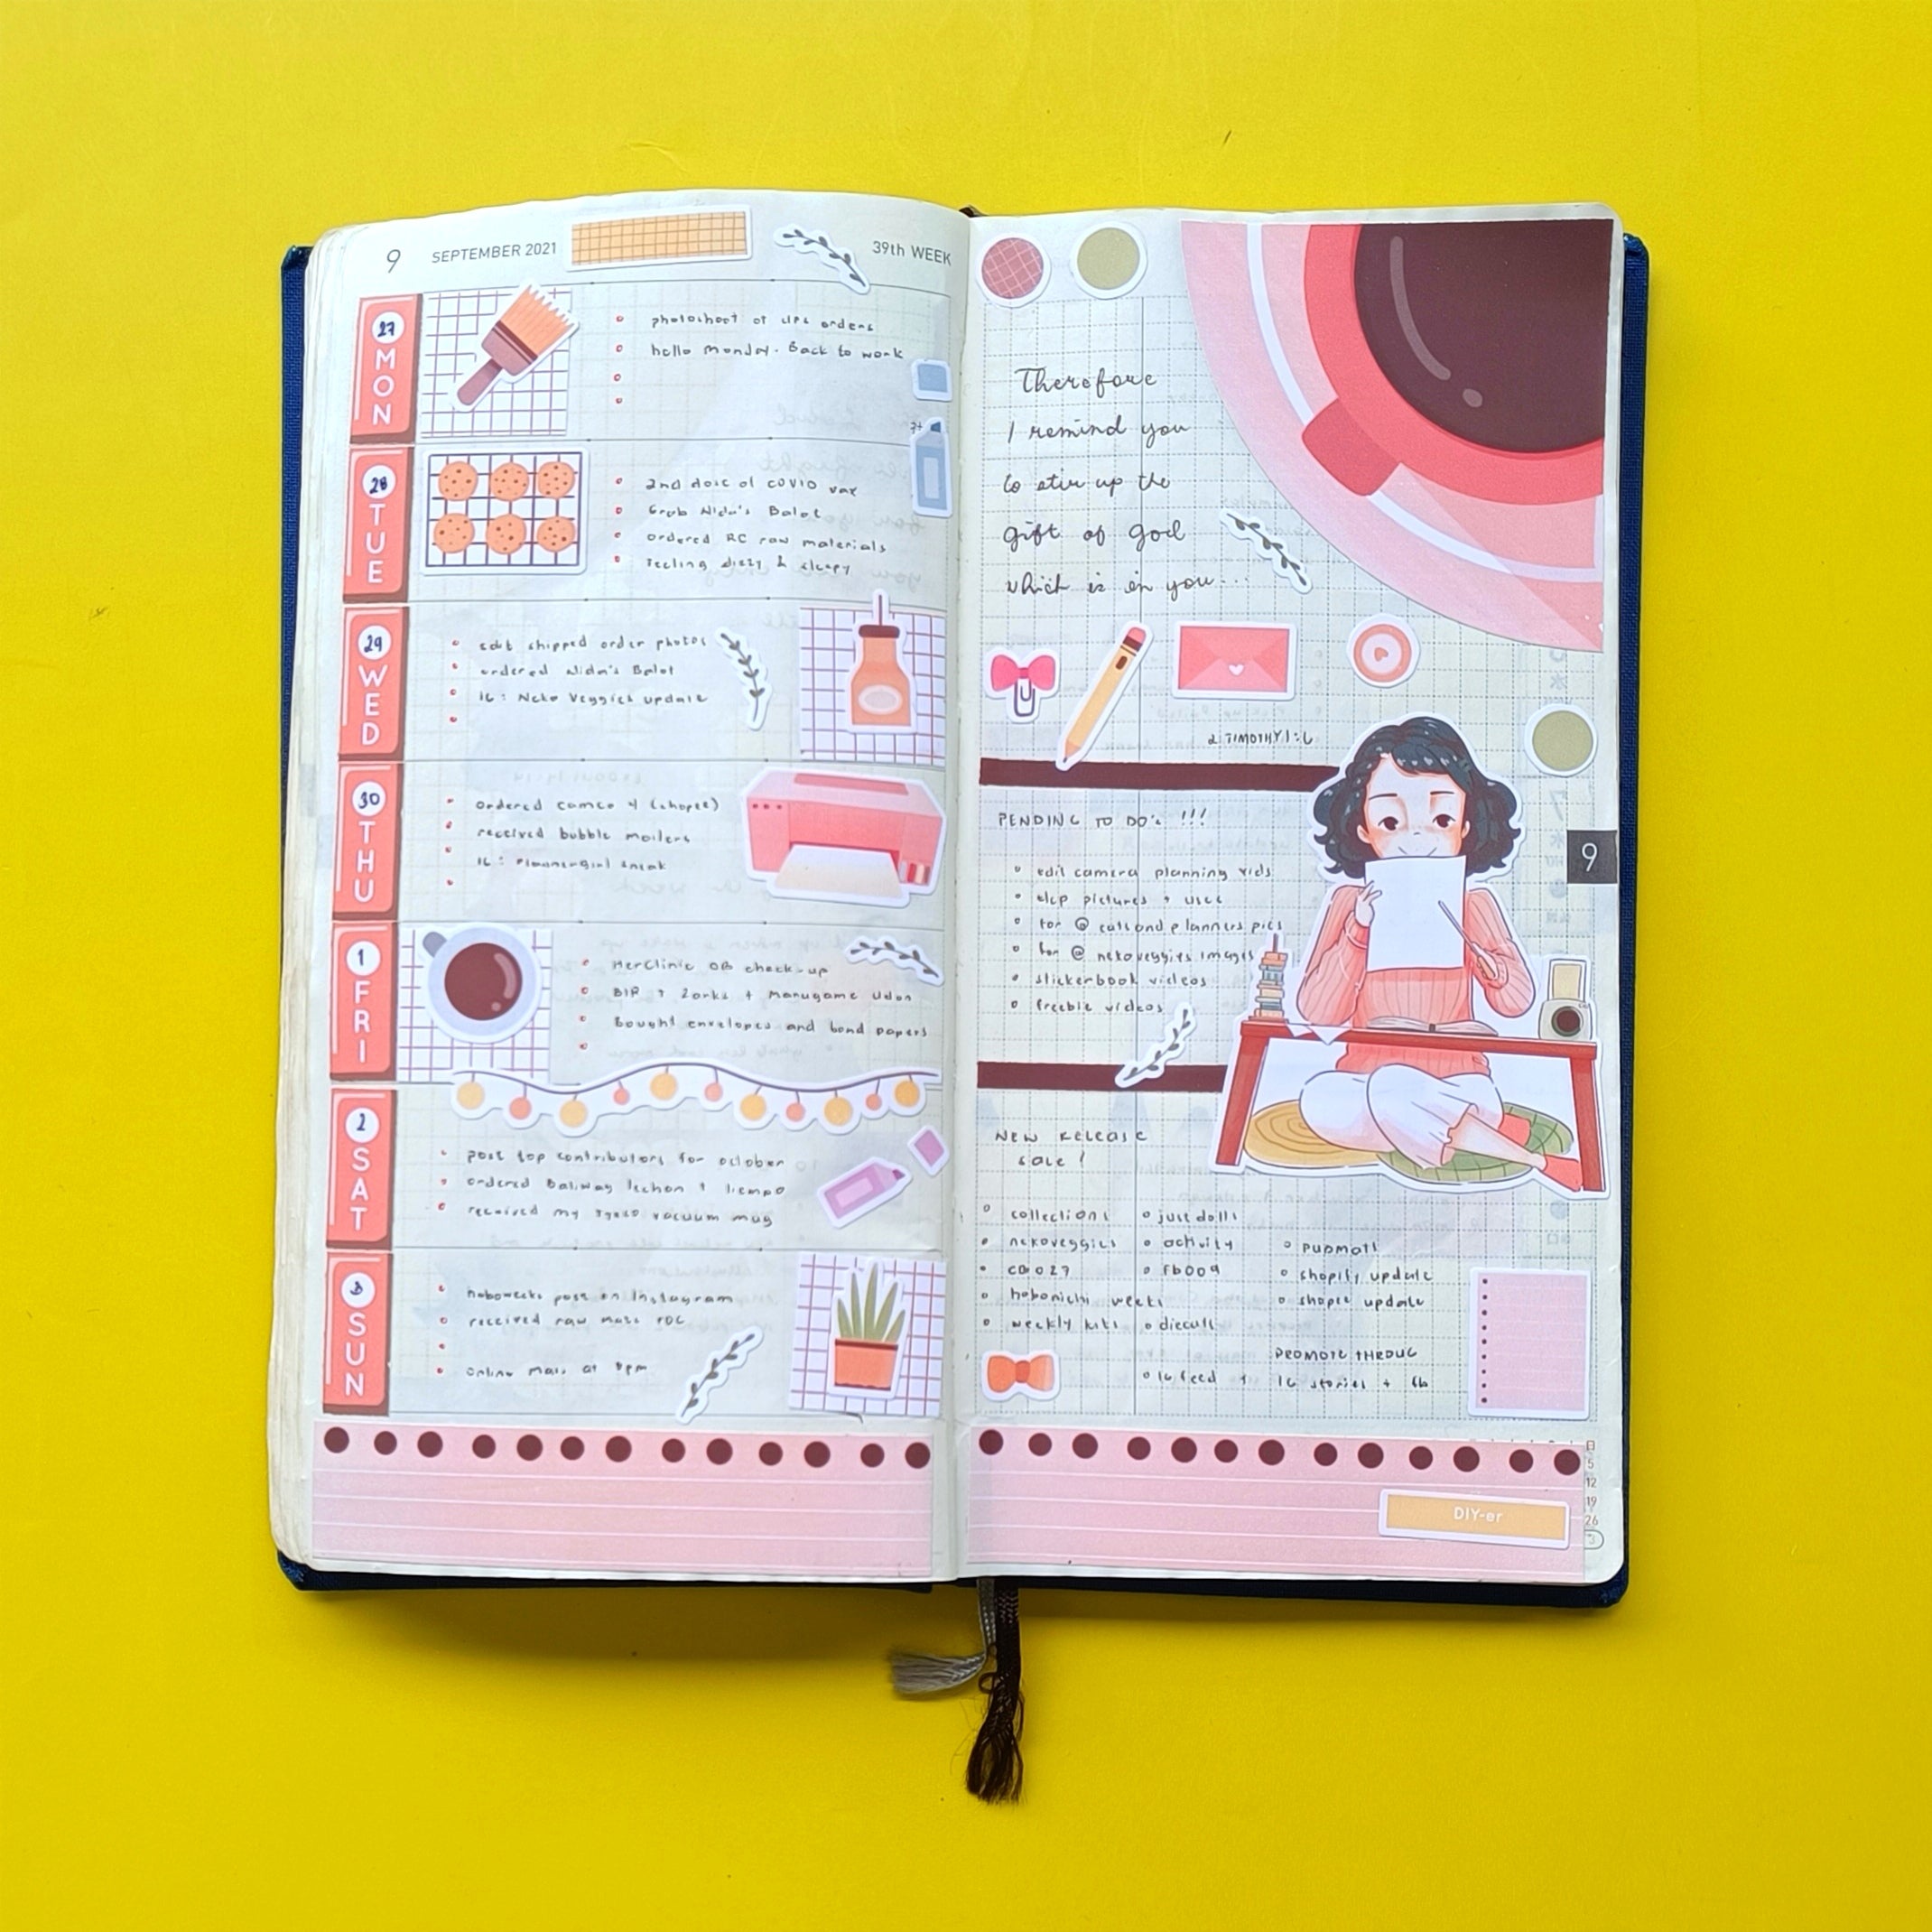 9 SEPTEMBER 2021 39th WEEK
27 MON
photoshoot of orders
hello monday. Back to work
28 TUE
2nd dose of COVID vax
Grab Nida's Balot
ordered RC raw materials
feeling dizzy & sleepy
29 WED
edit shipped order photos
ordered Nida's Balot
IG: Neko Veggies update
30 THU
ordered cameo 4 (shopee)
received bubble mailers
IG: Plannergirl sneak
1 FRI
HerClinic OB check-up
BIR + + Marugame Udon
Bought envelopes and bond papers
2 SAT
post top contributors for october
ordered Baliway lechon + liempo
received my vacuum mug
3 SUN
hoboweeks post on Instagram
received raw mats
online mass at 8pm
Therefore
I remind you
to stir up the
gift of god
which is in you...
2 TIMOTHY 1:6
PENDING TO DO's !!!
edit camera planning vids
pictures + uses
for @ catsandplanners pics
for @ nekoveggies images
stickerbook videos
freebie videos
9
NEW RELEASE
sale!
collections
just dolls
nekoveggies
activity
pupmall
027
fb009
shopify update
hobonichi weeks
shopee update
weekly kits
diecuts
PROMOTE THRU
IG feed + IG stories + fb
日
5
12
19
26
3
DIY-er